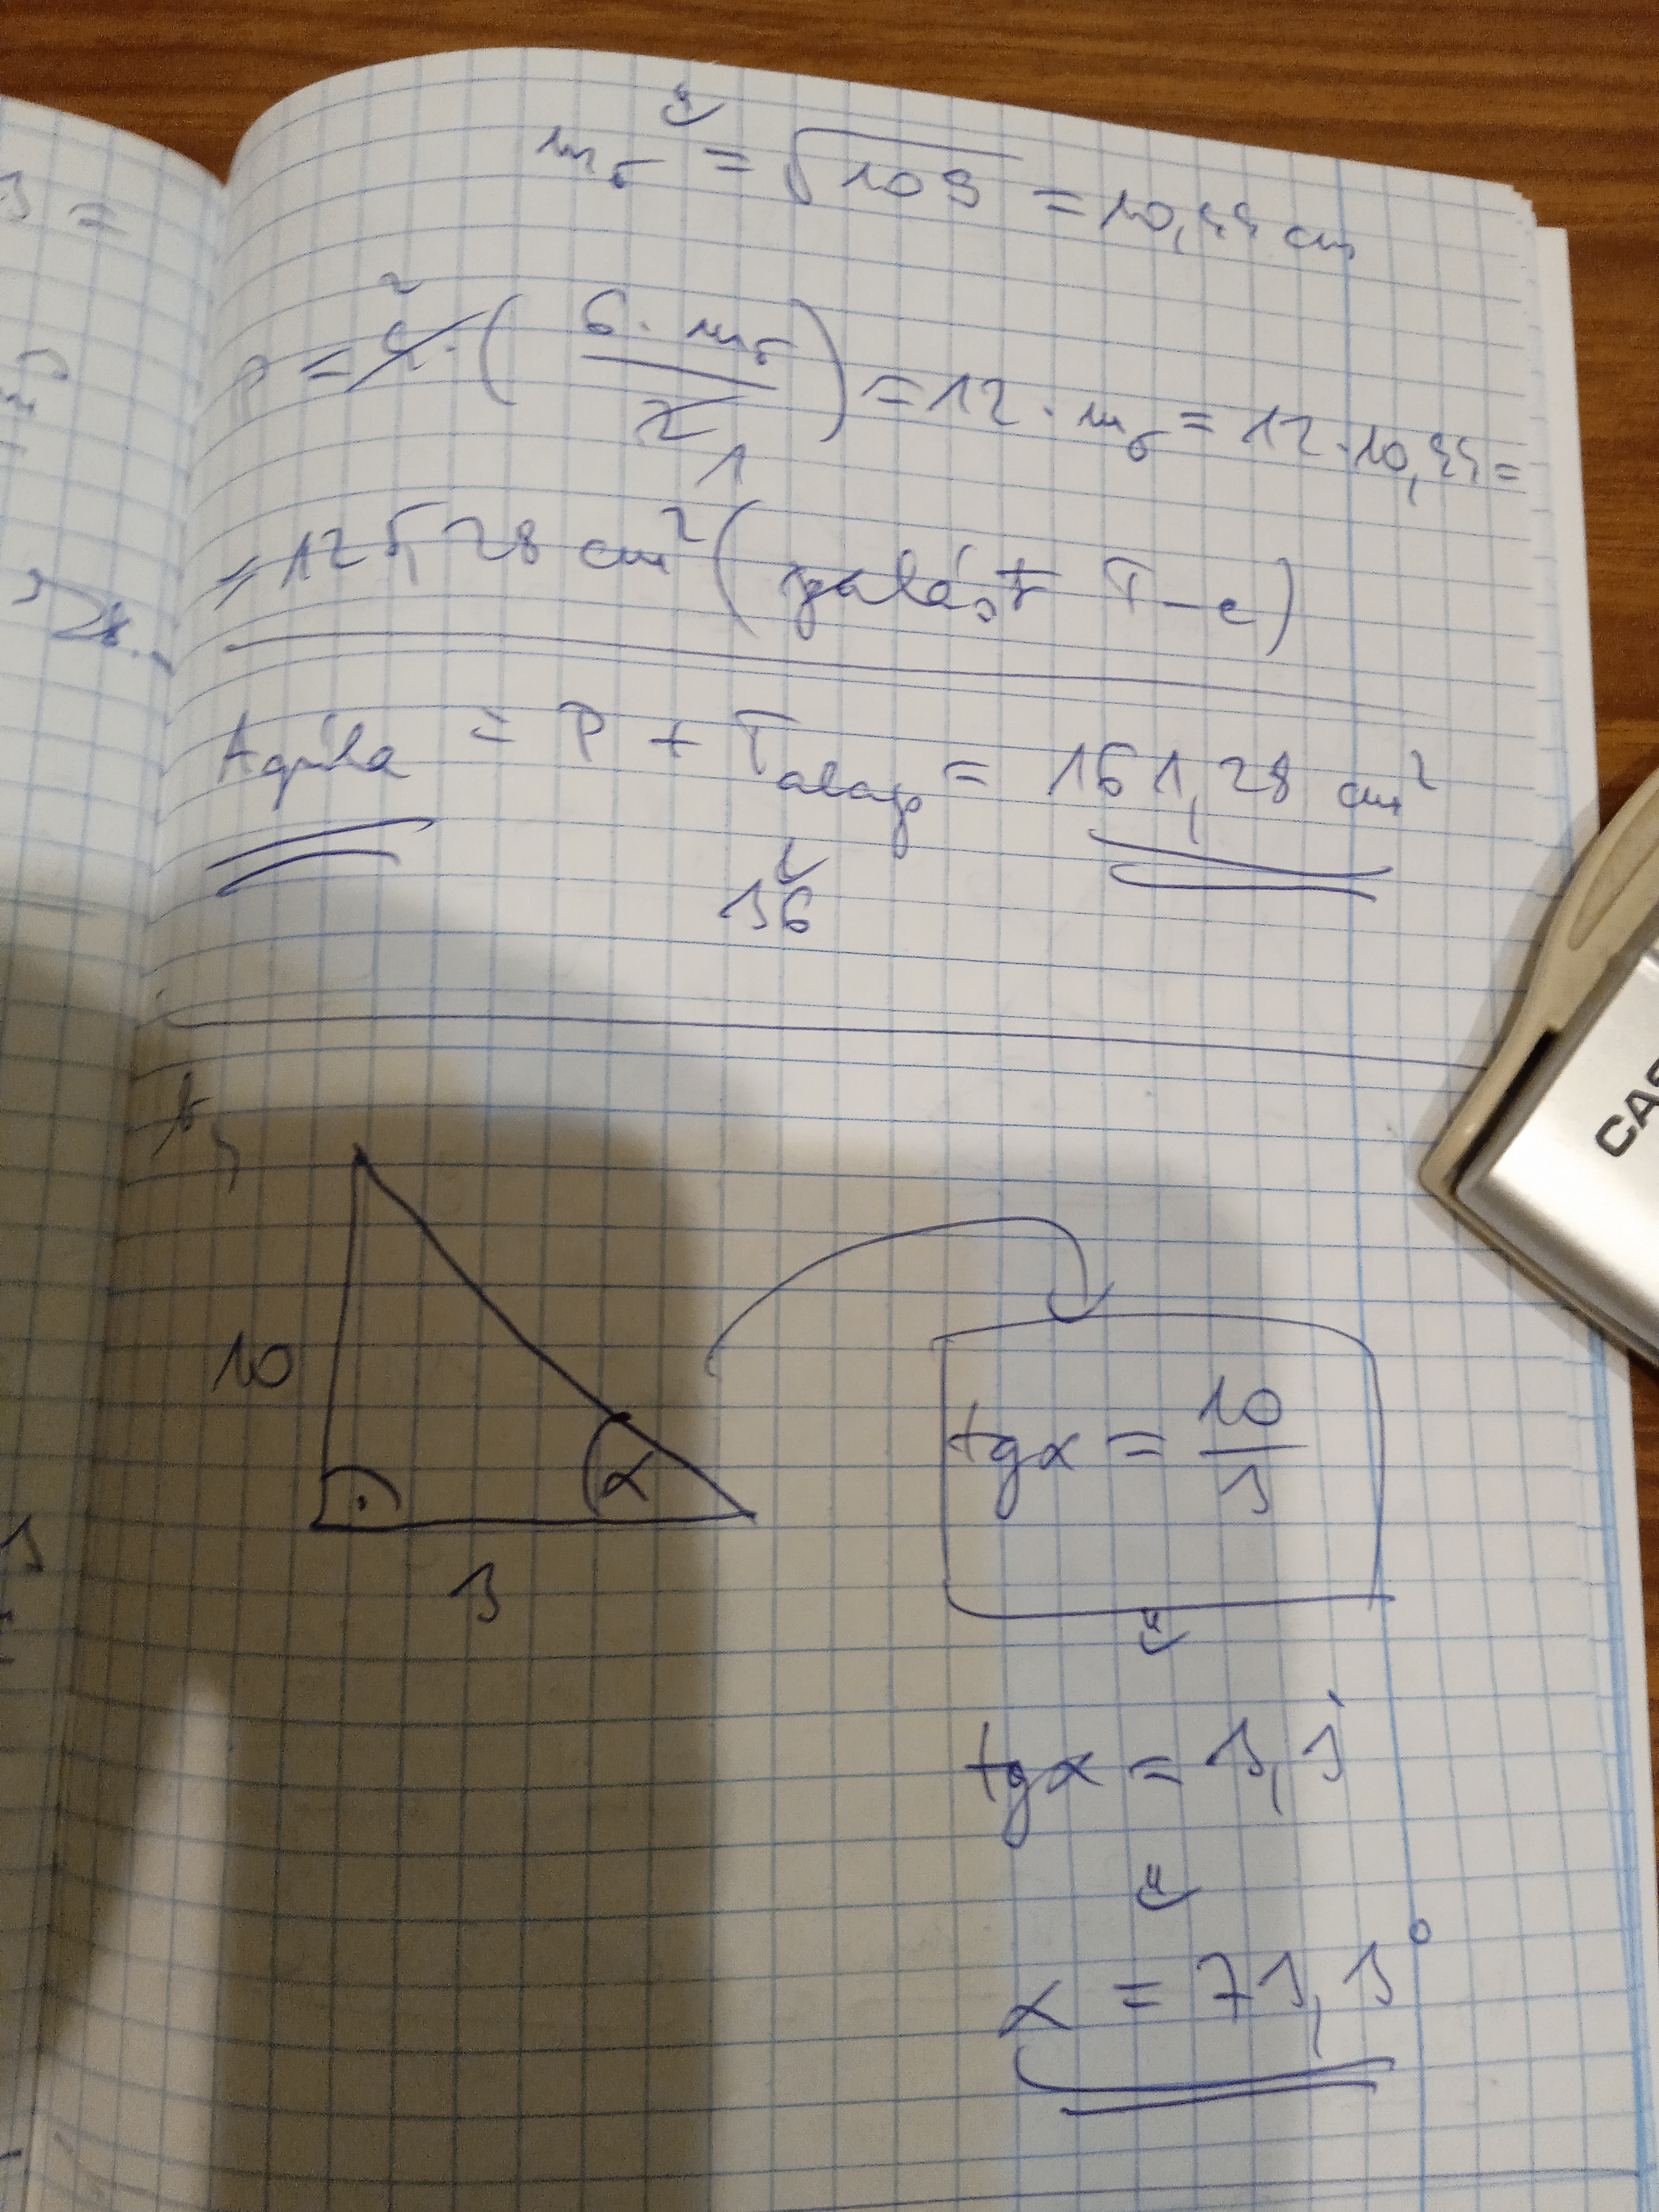 3 =
m₀ = √109 = 10,44 cm
P = 4 · ( 6 · m₀ / 2 ) = 12 · m₀ = 12 · 10,44 =
2
1
= 125,28 cm² (palást T-e)
Agúla = P + Talap = 161,28 cm²
36
b,
10
α
3
tgα = 10/3
tgα = 3,3̇
α = 73,3°
CAS